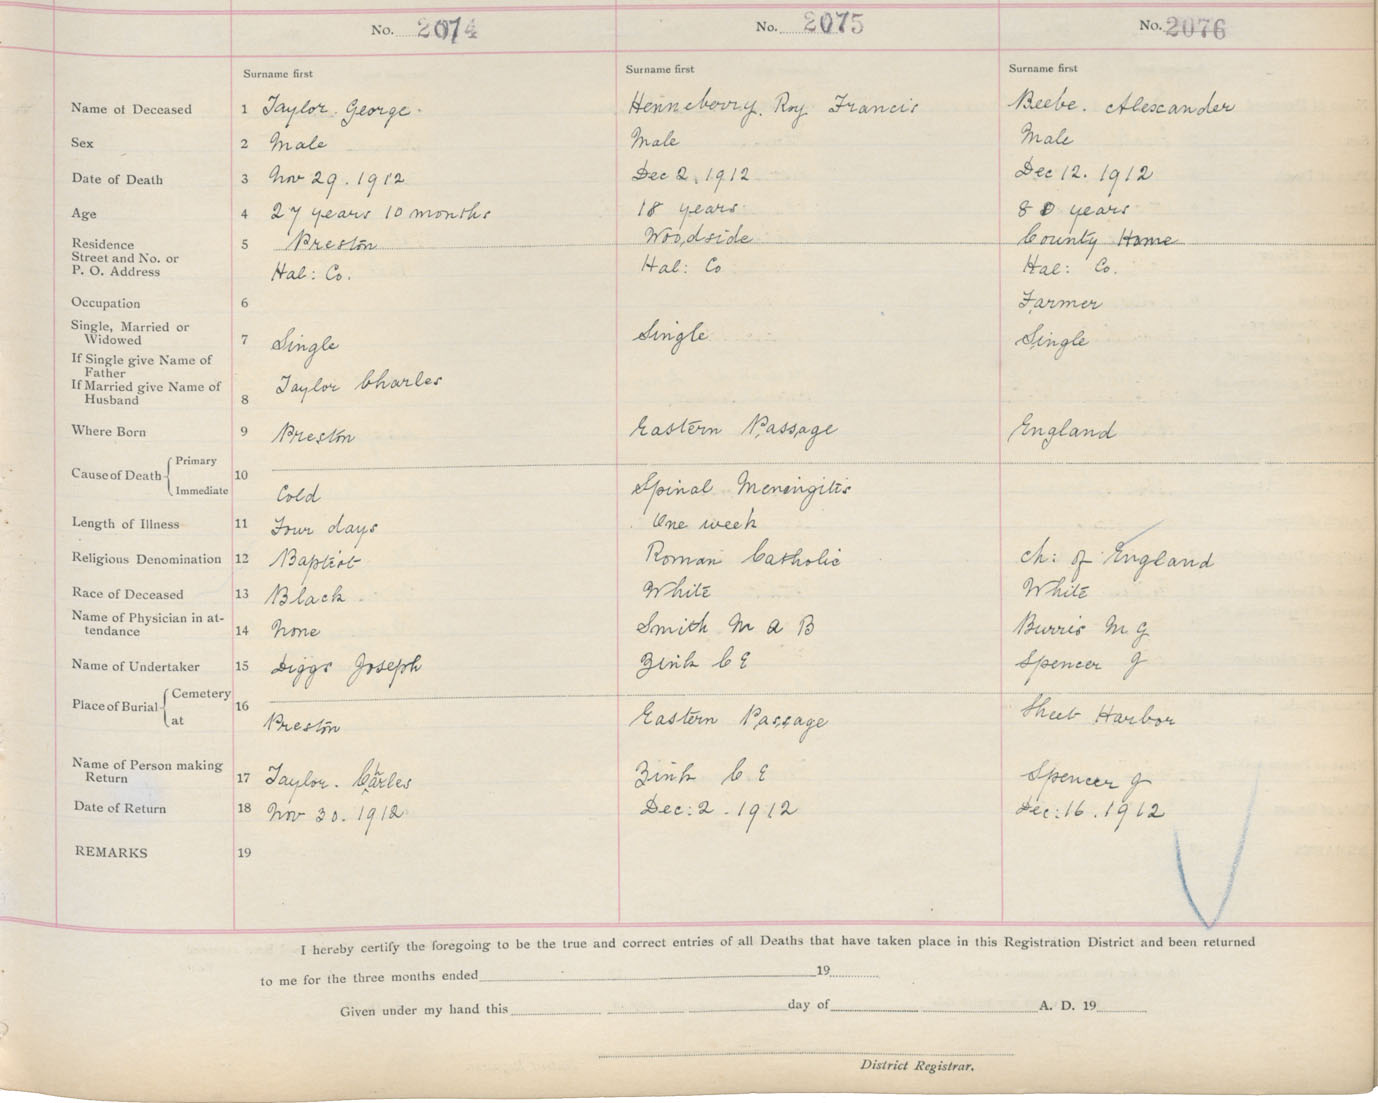 No. 2074 No. 2075 No. 2076
Surname first Surname first Surname first
Name of Deceased 1 Taylor. George. Henneberry. Roy Francis Beebe. Alexcander
Sex 2 Male Male Male
Date of Death 3 Nov 29. 1912 Dec 2. 1912 Dec 12. 1912
Age 4 27 years 10 months 18 years 80 years
Residence 5 Preston Woodside County Home
Street and No. or
P. O. Address Hal: Co. Hal: Co Hal: Co.
Occupation 6 Farmer
Single, Married or
Widowed 7 Single Single Single
If Single give Name of
Father
If Married give Name of Taylor Charles
Husband 8
Where Born 9 Preston Eastern Passage England
Cause of Death Primary
10
Immediate Cold Spinal Meningitis
Length of Illness 11 Four days One week
Religious Denomination 12 Baptist Roman Catholic Ch: of England
Race of Deceased 13 Black White White
Name of Physician in at-
tendance 14 None Smith M a B Burris M G
Name of Undertaker 15 Diggs Joseph Zink C E Spencer J
Place of Burial Cemetery
16
at Preston Eastern Passage Sheet Harbor
Name of Person making
Return 17 Taylor. Charles Zink C E Spencer J
Date of Return 18 Nov 30. 1912 Dec: 2. 1912 Dec: 16. 1912
REMARKS 19
I hereby certify the foregoing to be the true and correct entries of all Deaths that have taken place in this Registration District and been returned
to me for the three months ended 19
Given under my hand this day of A. D. 19
District Registrar.